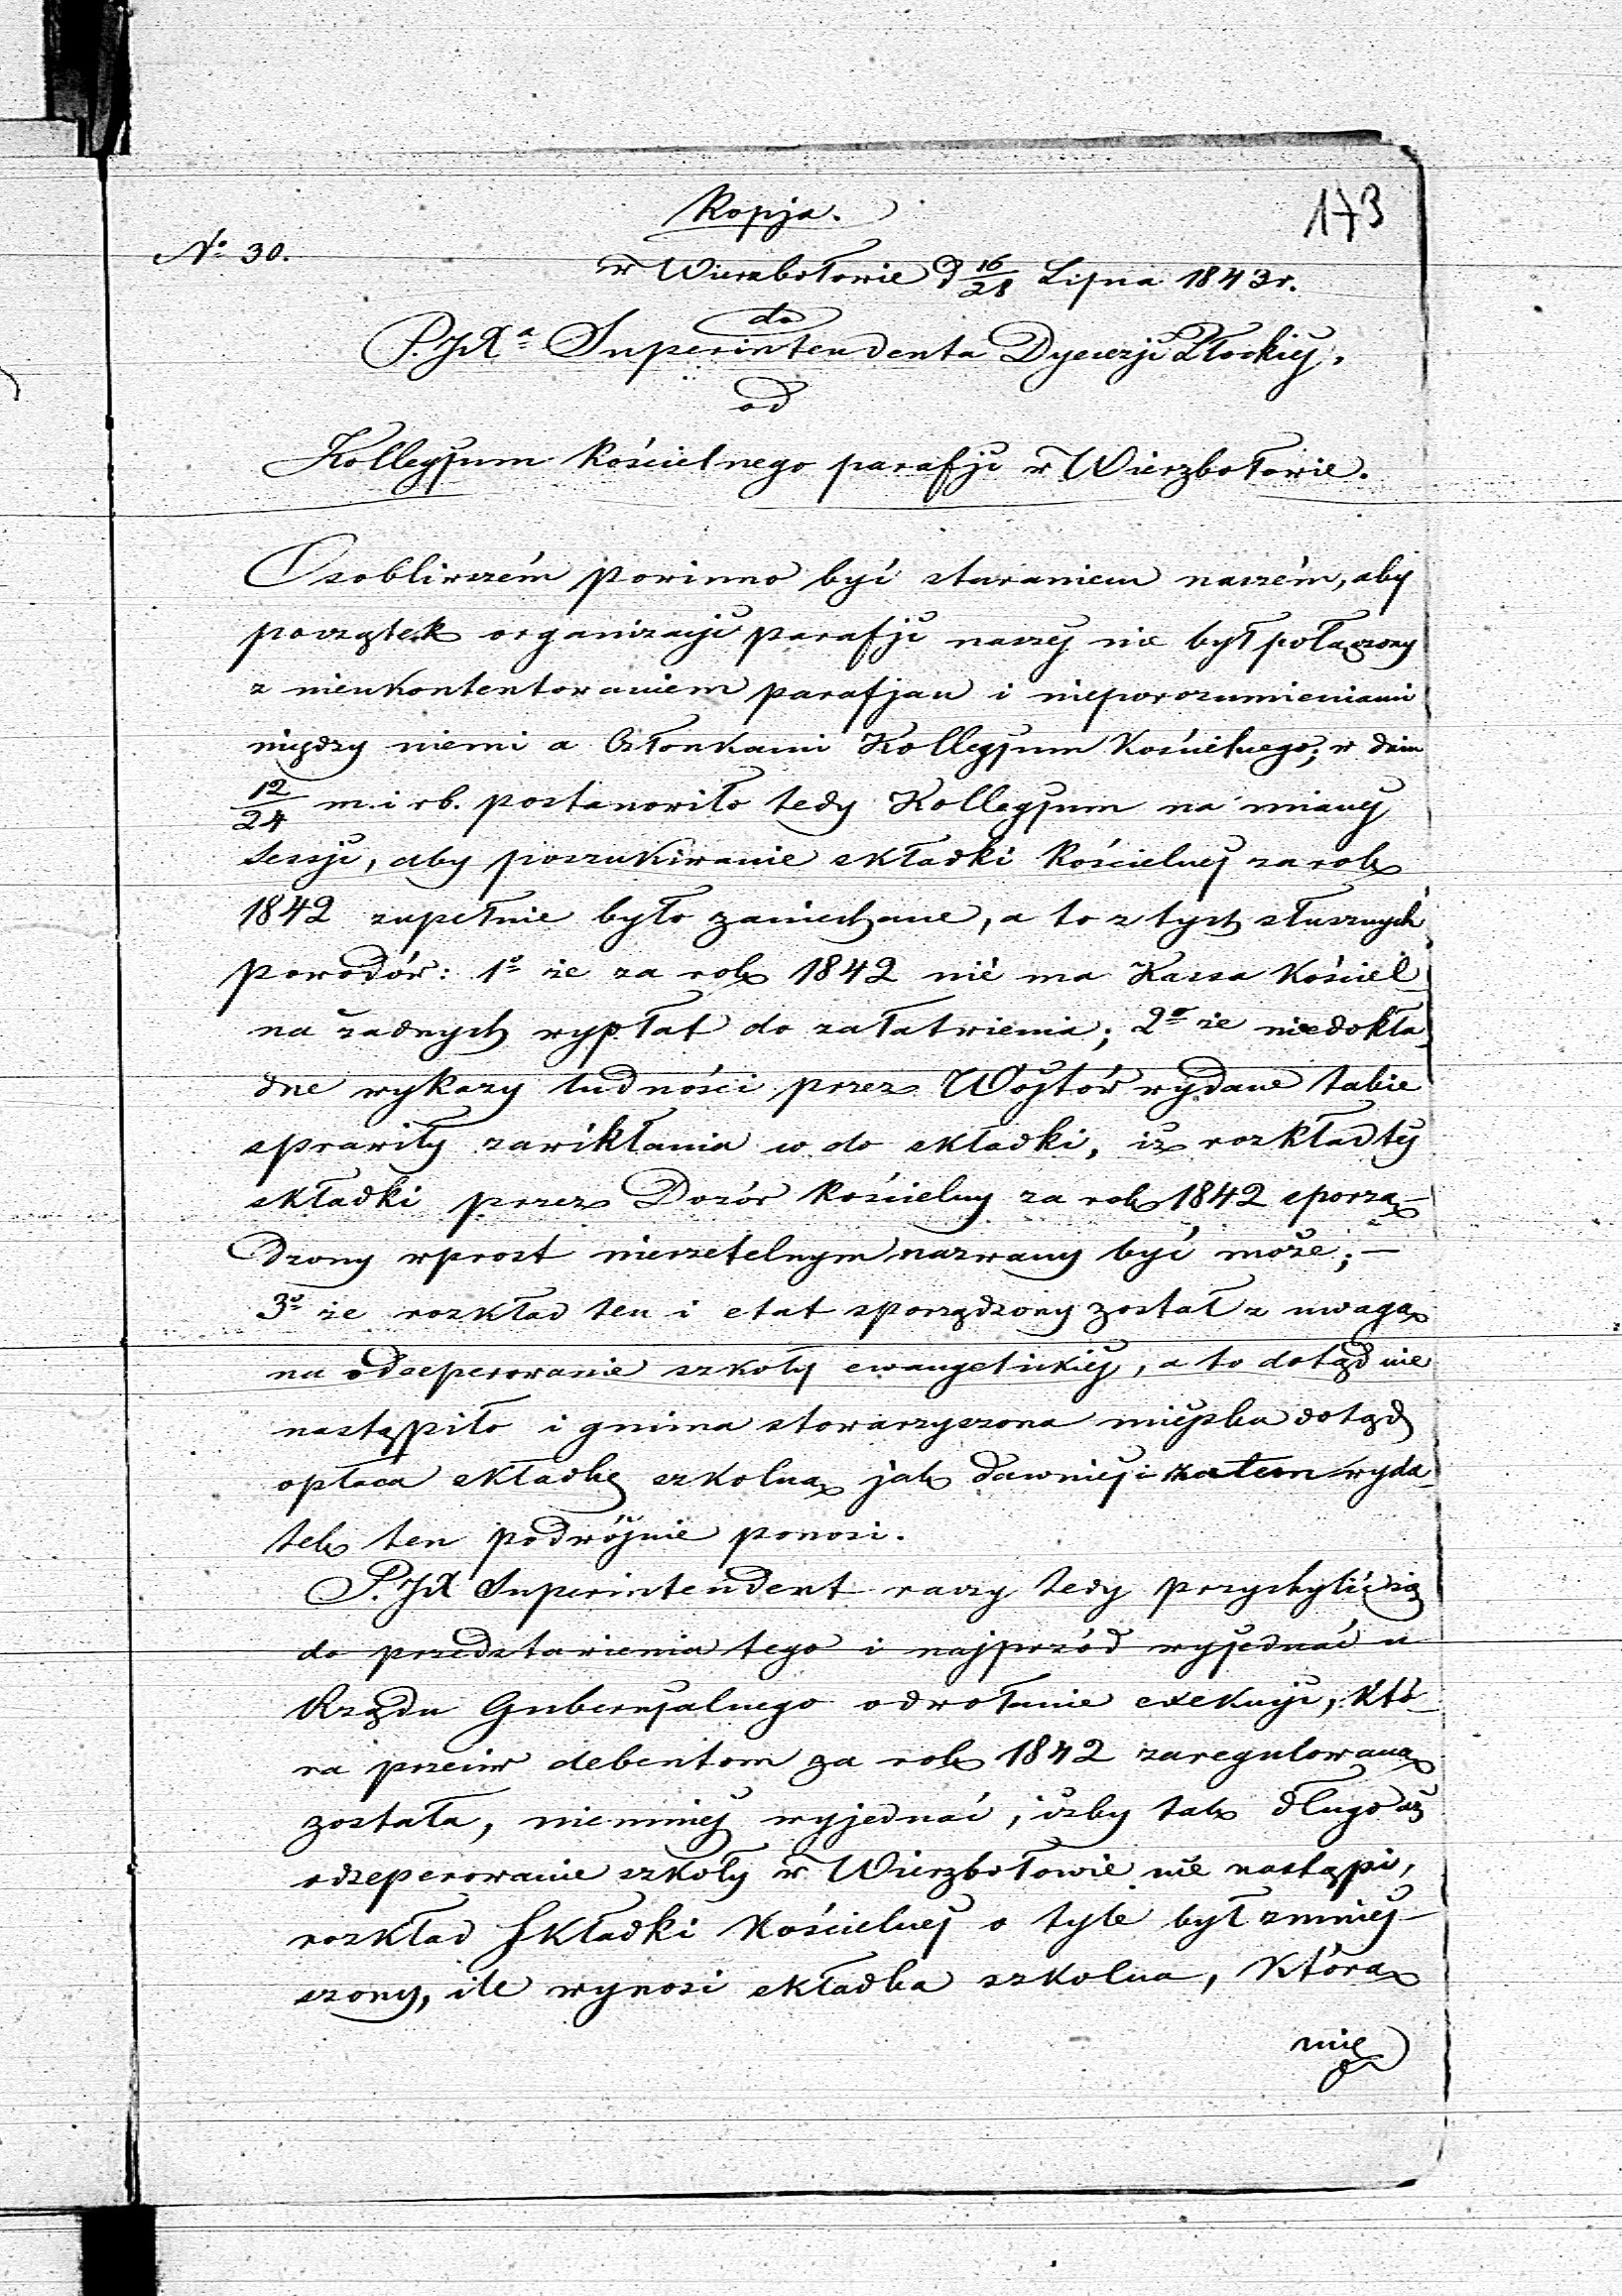 173
Kopja.
No 30.
w Wierzbołowie d 16/28 Lipca 1843 r.
do
P. JXa Superintendenta Dyecezji Płockiéj.
od
Kollegjum Kościelnego parafji w Wierzbołowie.
Osobliwszém powinno być staraniem naszém, aby
początek organizacji parafji naszéj nie był połączony
z nieukontentowaniem parafjan i nieporozumieniami
między niemi a Członkami Kollegjum Kościelnego; w dniu
12/24 m. i rb. postanowiło tedy Kollegjum na mianéj
sessji, aby poszukiwanie składki Kościelnéj za rok
1842 zupełnie było zaniechane, a to z tych słusznych
powodów: 1o że za rok 1842 nié ma Kassa Kościel
na żadnych wypłat do załatwienia; 2o że niedokła
dne wykazy ludności przez Wójtów wydane takie
sprawiły zawikłania co do składki, iż rozkład téj
składki przez Dozór Kościelny za rok 1842 sporzą-
dzony wprost nierzetelnym nazwany być może; —
3o że rozkład ten i etat sporządzony został z uwagą
na odseperowanie szkoły ewangelickiéj, a to dotąd nie
nastąpiło i gmina stowarzyszona miejska dotąd
opłaca składkę szkolną jak dawniéj i zatem wyda
tek ten podwójnie ponosi.
P. JX Superintendent raczy tedy przychylić się
do przedstawienia tego i najprzód wyjednać u
Rządu Gubernjalnego odwołanie exekucji, któ-
ra przeciw debentom za rok 1842 zaregulowaną
została, niemniéj wyjednać, iżby tak długo aż
odseperowanie szkoły w Wierzbołowie nie nastąpi,
rozkład składki Kościelnéj o tyle był zmniéj-
szony, ile wynosi składka szkolna, którą